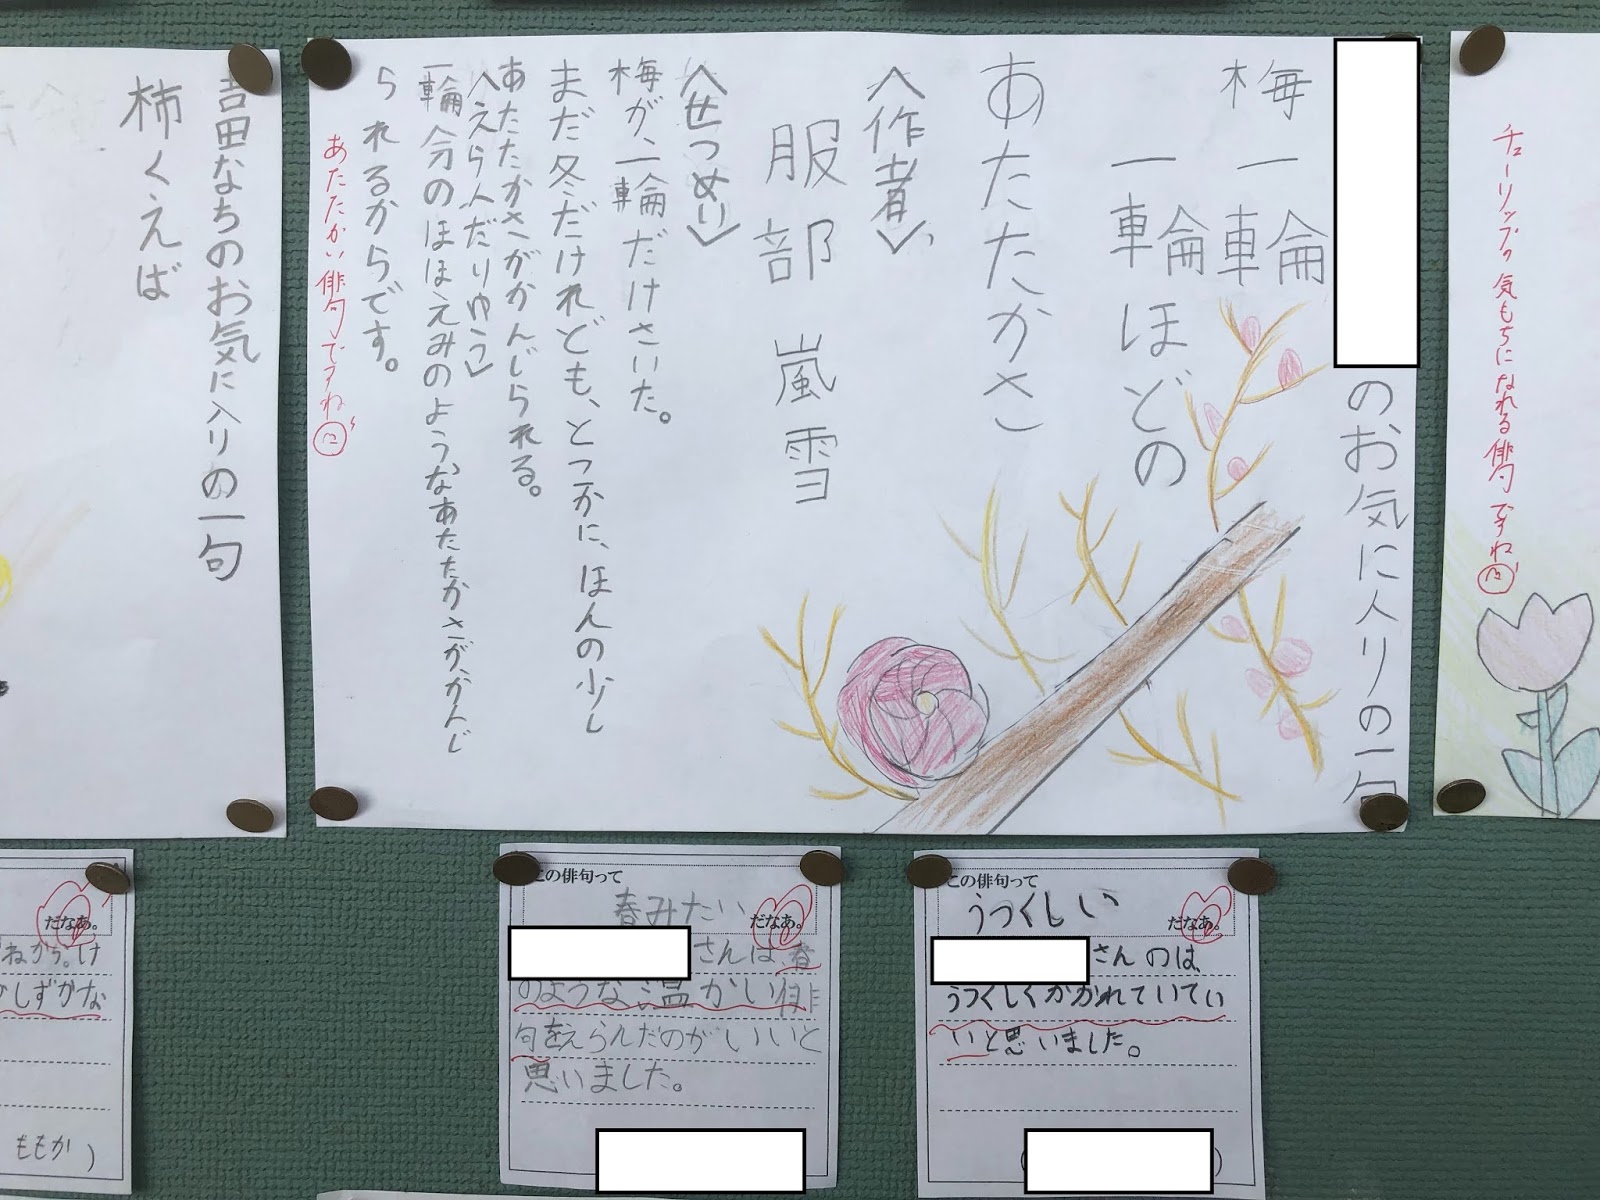 チューリップの気もちになれる俳句ですね
のお気に入りの一句
梅一輪
一輪ほどの
あたたかさ
〈作者〉
服部嵐雪
〈せつめい〉
梅が、一輪だけさいた。
まだ冬だけれども、とっかに、ほんの少し
あたたかさがかんじられる。
〈えらんだりゆう〉
一輪分のほほえみのようなあたたかさが、かんじ
られるからです。
あたたかい俳句ですね
吉田なちのお気に入りの一句
柿くえば
だなあ。
しずかな
ももか)
この俳句って
春みたい
だなあ。
さんは、春
のような温かい俳
句をえらんだのがいいと
思いました。
この俳句って
うつくしい
だなあ。
さんのは、
うつくしくかかれていてい
いと思いました。